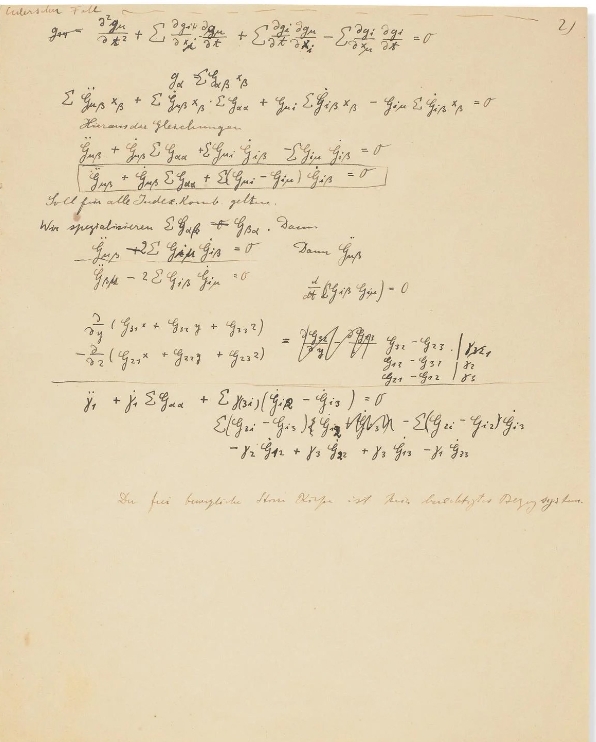 2)
∂²gμ/∂t² + Σ ∂giν/∂xμ · ∂gμ/∂t + Σ ∂gi/∂t ∂gμ/∂xi − Σ ∂gi/∂xμ ∂gi/∂t = 0
gα Σ Gαβ xβ
Σ G̈μβ xβ + Σ Ġμβ xβ · Σ Gαα + Gμi Σ Ġiβ xβ − Giμ Σ Ġiβ xβ = 0
Hieraus die Gleichungen
G̈μβ + Ġμβ Σ Gαα + Σ Gμi Ġiβ − Σ Giμ Ġiβ = 0
G̈μβ + Ġμβ Σ Gαα + Σ(Gμi − Giμ) Ġiβ = 0
Soll für alle Index-Komb. gelten.
Wir spezialisieren Σ Gαβ Gβα. Dann
G̈μβ + 2Σ Giμ Ġiβ = 0 Dann G̈μβ
G̈βμ − 2 Σ Giβ Ġiμ = 0
d/dt (Giβ Giμ) = 0
∂/∂y (G31x + G32y + G33z)
− ∂/∂z (G21x + G22y + G23z)
= G32 − G23 | γ1
G13 − G31 | γ2
G21 − G12 | γ3
γ̈1 + γ̇1 Σ Gαα + Σ γ(3i) (Ġi2 − Ġi3) = 0
Σ(G3i − Gi3) Ġi2 − Σ(G2i − Gi2) Ġi3
− γ2 Ġ12 + γ3 Ġ22 + γ3 Ġ13 − γ1 Ġ33
Der frei bewegliche Körper ist kein berechtigtes Bezugssystem.